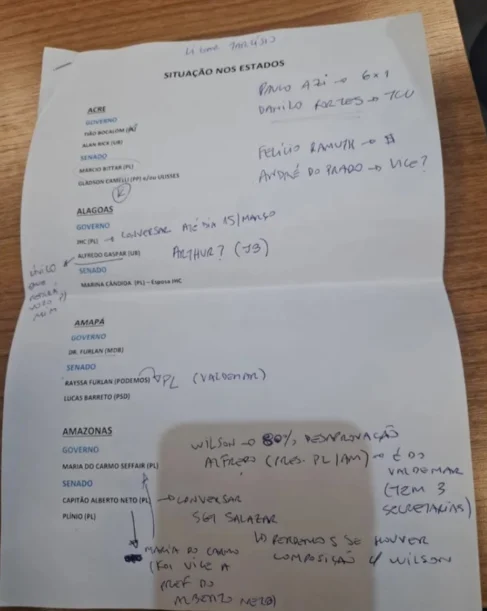 LIGAR
SITUAÇÃO NOS ESTADOS
PAULO AZI → 6x1
DANILO FORTES → TCU
FELÍCIO RAMUTH →
ANDRÉ DO PRADO → VICE?
ACRE
GOVERNO
TIÃO BOCALOM
ALAN RICK (UB)
SENADO
MÁRCIO BITTAR (PL)
GLADSON CAMELLI (PP) e/ou ULISSES
ALAGOAS
GOVERNO
JHC (PL) → CONVERSAR ATÉ DIA 15/MARÇO
ALFREDO GASPAR (UB)
ARTHUR? (JB)
SENADO
MARINA CÂNDIDA (PL) – Esposa JHC
AMAPÁ
GOVERNO
DR. FURLAN (MDB)
SENADO
RAYSSA FURLAN (PODEMOS) PL (VALDEMAR)
LUCAS BARRETO (PSD)
AMAZONAS
GOVERNO
MARIA DO CARMO SEFFAIR (PL)
SENADO
CAPITÃO ALBERTO NETO (PL) → CONVERSAR
PLÍNIO (PL)
WILSON → 80% DESAPROVAÇÃO
ALFREDO (PRES. PL/AM) → É DO VALDEMAR
(TEM 3 SECRETARIAS)
SGT SALAZAR
PERDEMOS SE HOUVER
COMPOSIÇÃO C/ WILSON
MARIA DO CARMO
(FOI VICE A
PREF DO
ALBERTO NETO)